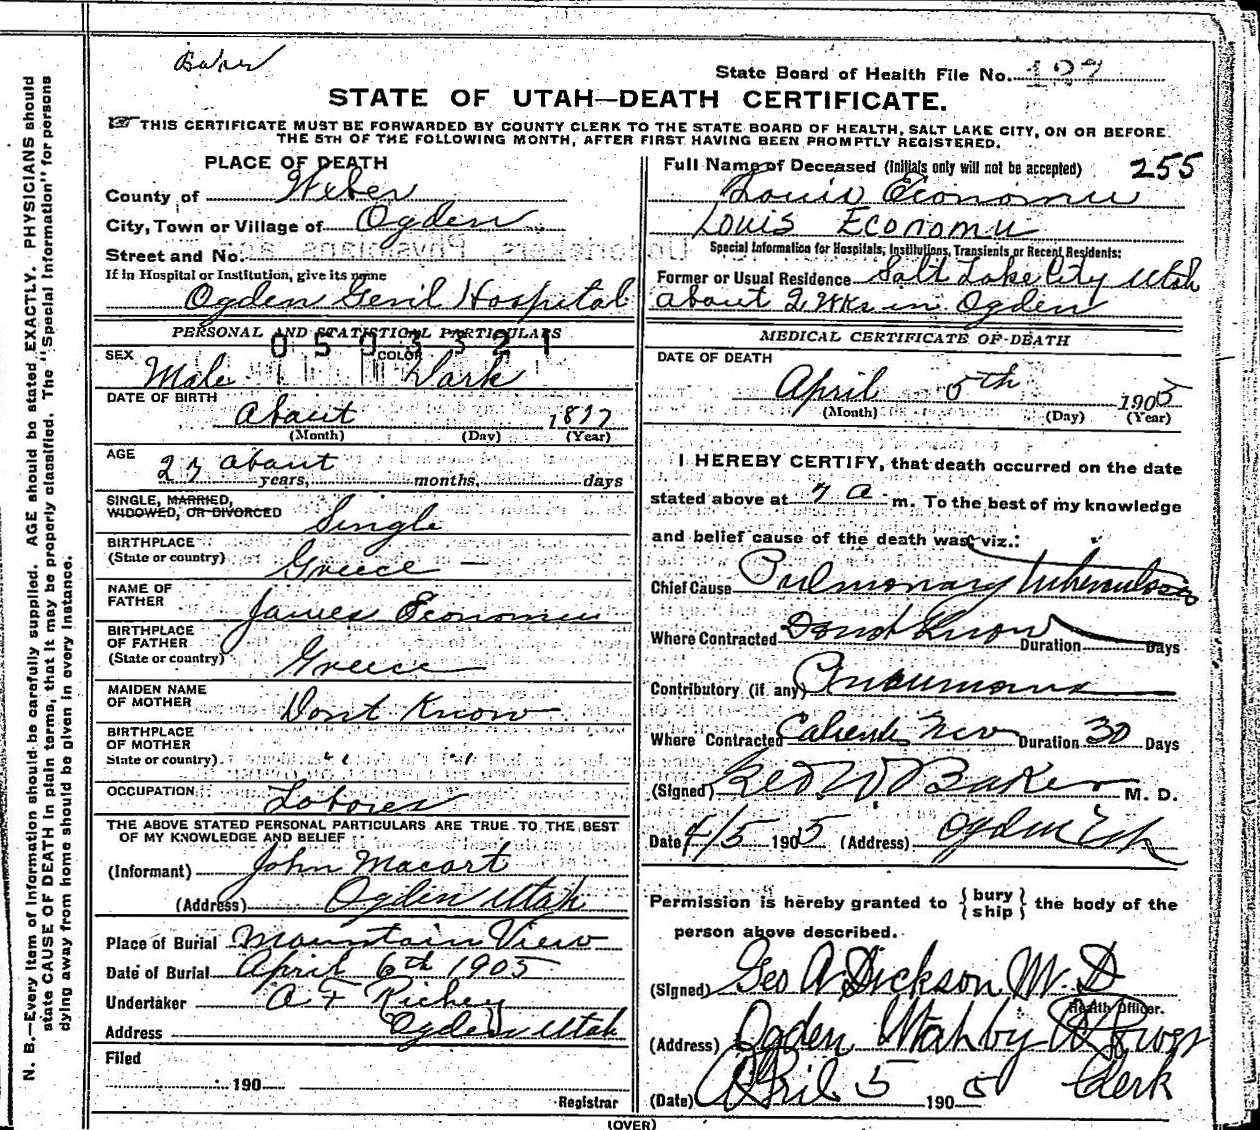 Baker
State Board of Health File No. 127
STATE OF UTAH—DEATH CERTIFICATE.
THIS CERTIFICATE MUST BE FORWARDED BY COUNTY CLERK TO THE STATE BOARD OF HEALTH, SALT LAKE CITY, ON OR BEFORE
THE 5TH OF THE FOLLOWING MONTH, AFTER FIRST HAVING BEEN PROMPTLY REGISTERED.
PLACE OF DEATH
County of Weber
City, Town or Village of Ogden
Street and No.
If in Hospital or Institution, give its name
Ogden Genil Hospital
PERSONAL AND STATISTICAL PARTICULARS
0503321
SEX Male COLOR Dark
DATE OF BIRTH about 1877
(Month) (Day) (Year)
AGE 27 about
years, months, days
SINGLE, MARRIED,
WIDOWED, OR DIVORCED Single
BIRTHPLACE
(State or country) Greece —
NAME OF
FATHER James Economu
BIRTHPLACE
OF FATHER
(State or country) Greece
MAIDEN NAME
OF MOTHER Dont Know
BIRTHPLACE
OF MOTHER
State or country) " "
OCCUPATION Laborer
THE ABOVE STATED PERSONAL PARTICULARS ARE TRUE TO THE BEST
OF MY KNOWLEDGE AND BELIEF
(Informant) John Macort
(Address) Ogden Utah
Place of Burial Mountain View
Date of Burial April 6th 1905
Undertaker A F Richey
Address Ogden Utah
Filed
190
Registrar
Full Name of Deceased (Initials only will not be accepted) 255
Louis Economu
Louis Economu
Special Information for Hospitals, Institutions, Transients or Recent Residents:
Former or Usual Residence Salt Lake City Utah
about 2 wks in Ogden
MEDICAL CERTIFICATE OF DEATH
DATE OF DEATH
April 5th 1905
(Month) (Day) (Year)
I HEREBY CERTIFY, that death occurred on the date
stated above at 7 a m. To the best of my knowledge
and belief cause of the death was, viz.:
Chief Cause Pulmonary Tuberculosis
Where Contracted Donot Know Duration Days
Contributory (if any) Pneumonia
Where Contracted Caliente Nev Duration 30 Days
(Signed) Geo W Baker M. D.
Date 4/5 1905 (Address) Ogden Utah
Permission is hereby granted to { bury ship } the body of the
person above described.
(Signed) Geo A Dickson M. D
Health Officer.
(Address) Ogden Utah by
(Date) April 5 1905 Clerk
(OVER)
N. B.—Every item of information should be carefully supplied. AGE should be stated EXACTLY. PHYSICIANS should
state CAUSE OF DEATH in plain terms, that it may be properly classified. The "Special Information" for persons
dying away from home should be given in every instance.